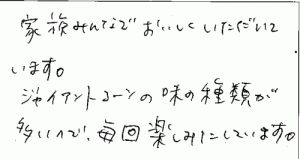 家族みんなでおいしくいただいて
います。
ジャイアントコーンの味の種類が
多いので、毎回楽しみにしています。